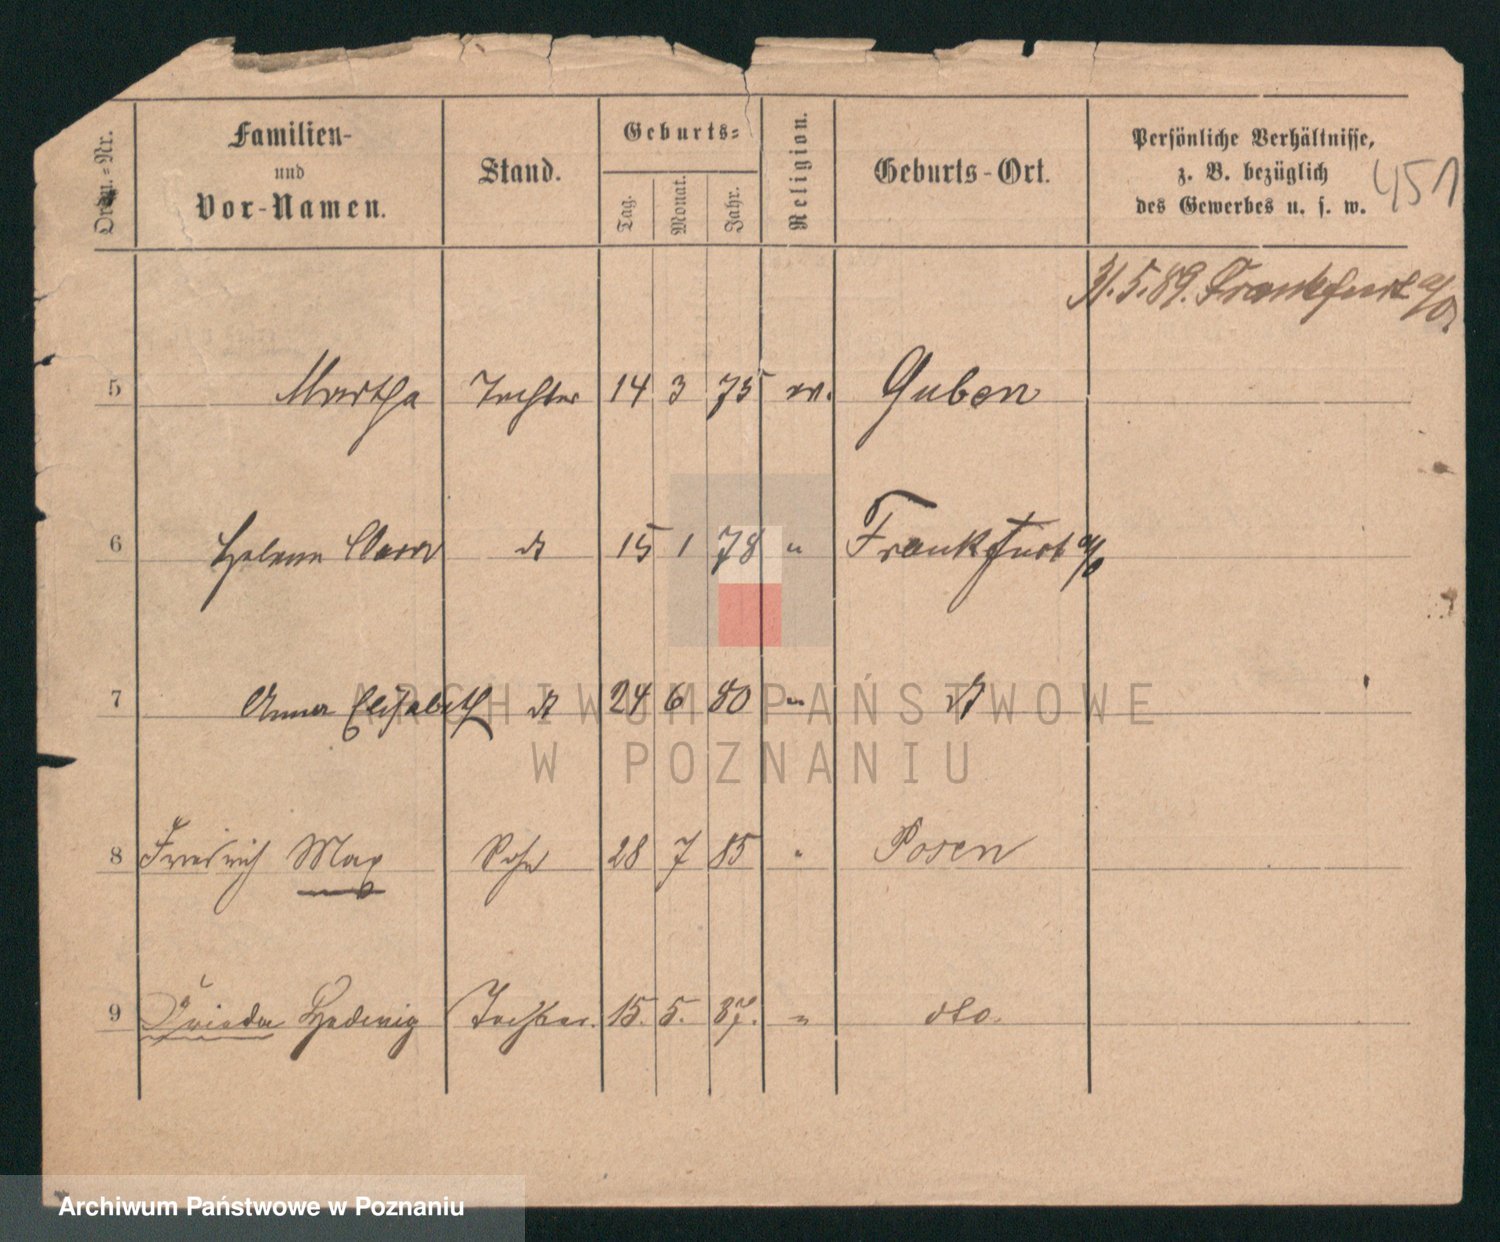 Ordn.-Nr. Familien- und Vor-Namen. Stand. Geburts- Tag. Monat. Jahr. Religion. Geburts-Ort. Persönliche Verhältnisse, z. B. bezüglich des Gewerbes u. s. w.
451
31.5.89. Frankfurt a/O.
5 Martha Tochter 14 3 75 ev. Guben
6 Helene Clara dt 15 1 78 " Frankfurt a/O
7 Anna Elisabeth dt 24 6 80 " dt
8 Friedrich Max Sohn 28 7 85 " Posen
9 Frieda Hedwig Tochter. 15. 5. 87. " dto.
ARCHIWUM PAŃSTWOWE
W POZNANIU
Archiwum Państwowe w Poznaniu